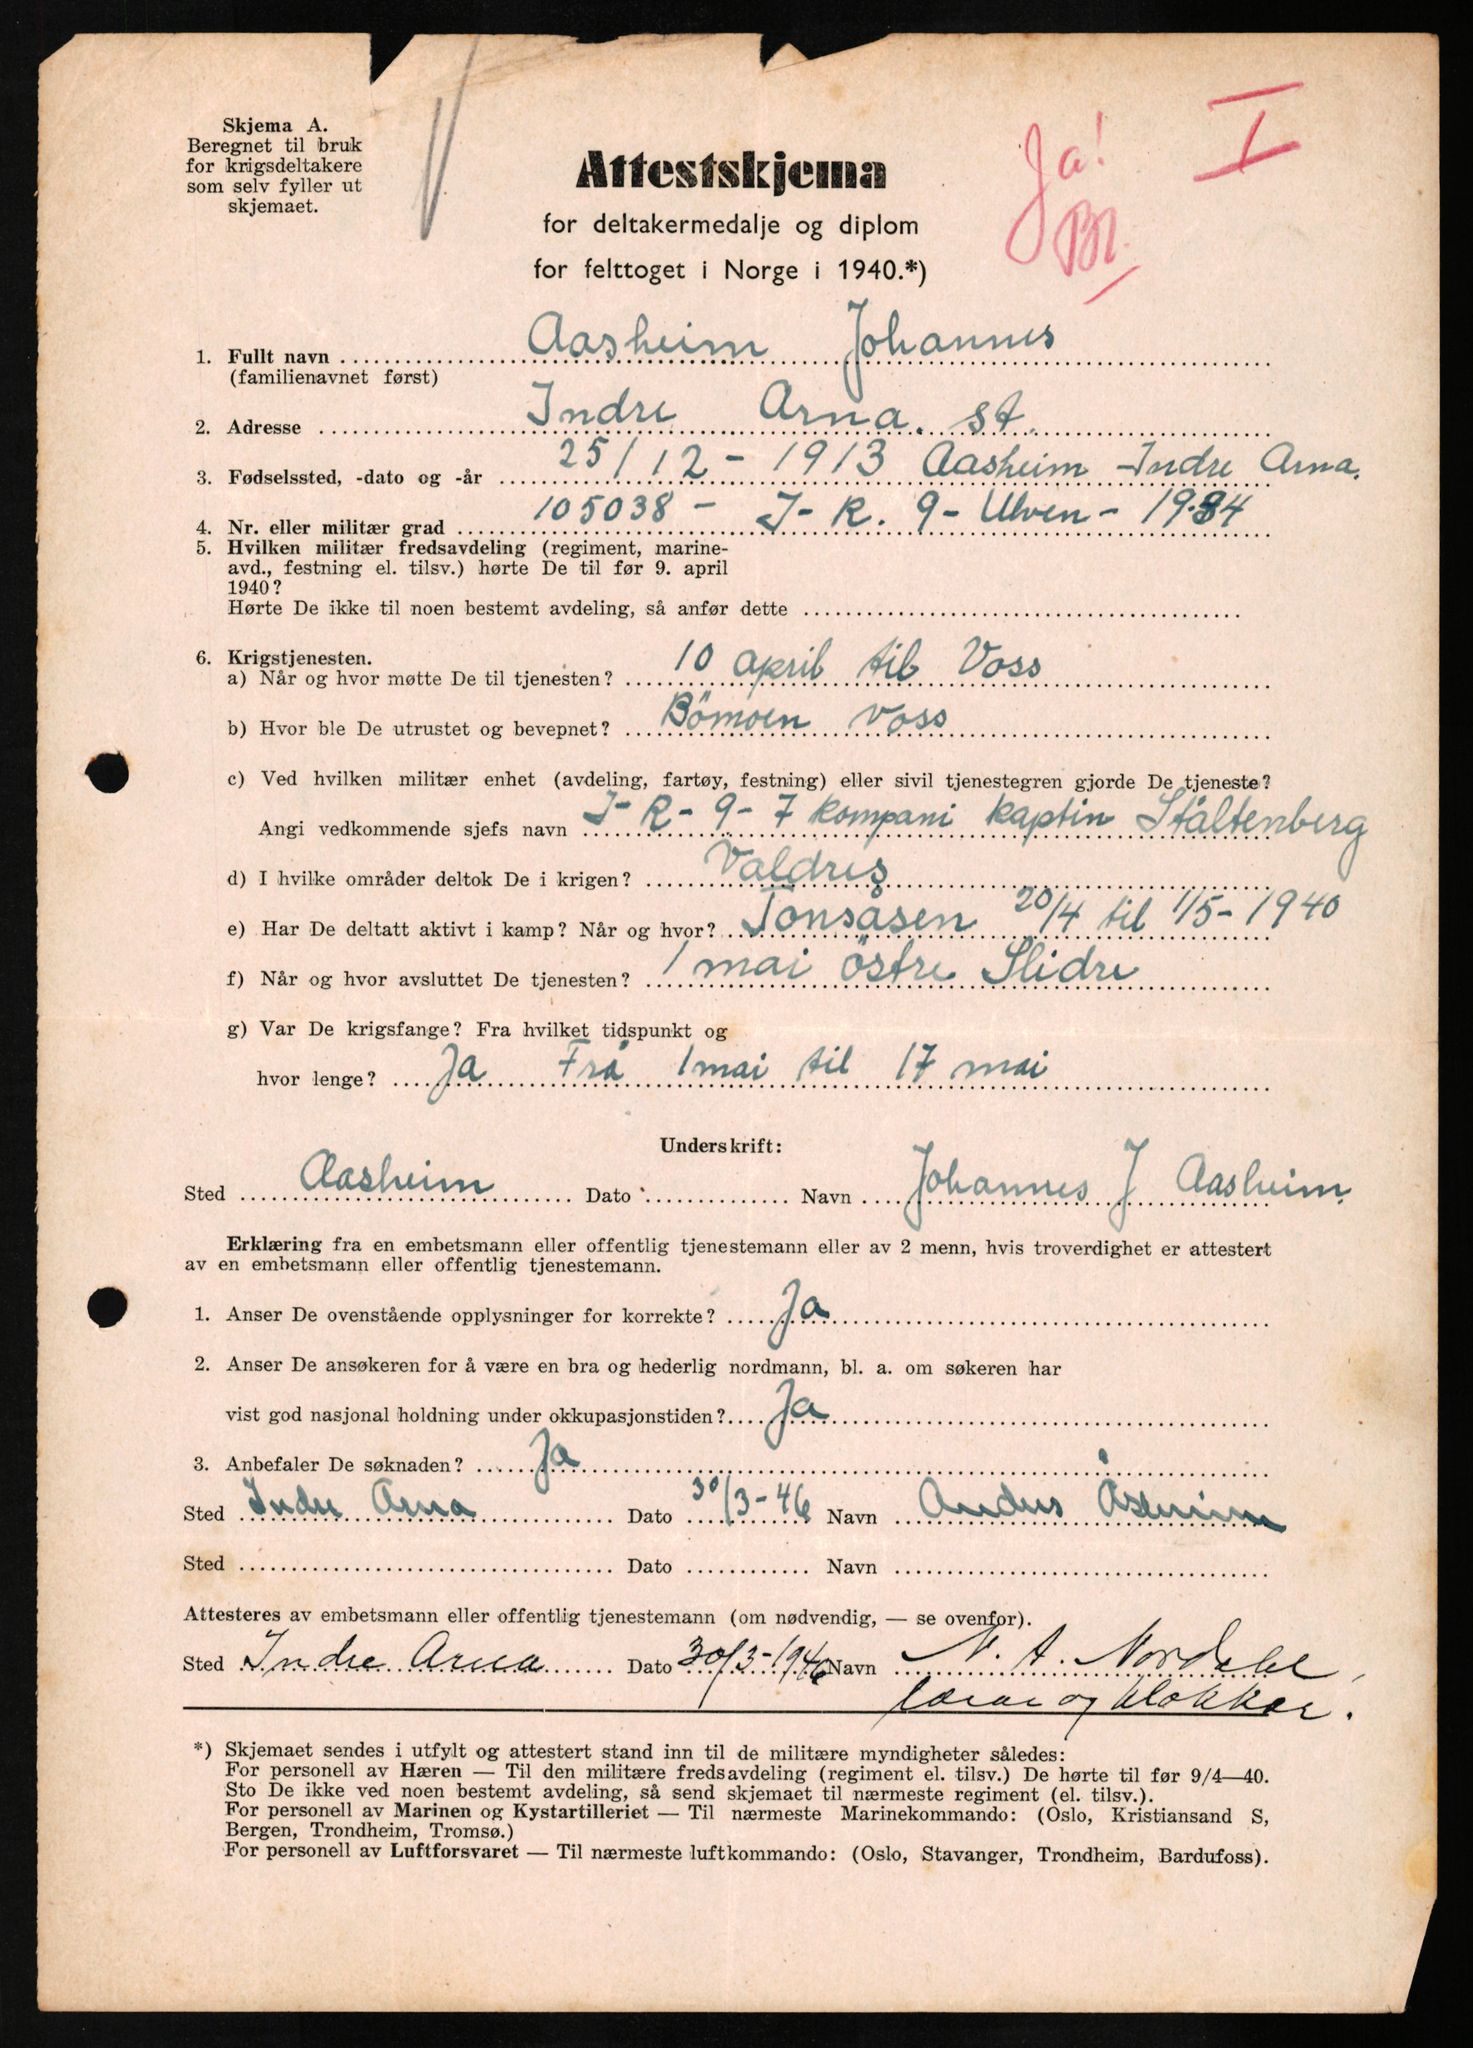 Skjema A.
Beregnet til bruk
for krigsdeltakere
som selv fyller ut
skjemaet.
Ja!
Bl.
I
Attestskjema
for deltakermedalje og diplom
for felttoget i Norge i 1940.*)
1. Fullt navn Aasheim Johannes
(familienavnet først)
2. Adresse Indre Arna. st.
3. Fødselssted, -dato og -år 25/12-1913 Aasheim Indre Arna.
4. Nr. eller militær grad 105038 - J-R. 9- Ulven - 1934
5. Hvilken militær fredsavdeling (regiment, marine-
avd., festning el. tilsv.) hørte De til før 9. april
1940?
Hørte De ikke til noen bestemt avdeling, så anfør dette
6. Krigstjenesten.
a) Når og hvor møtte De til tjenesten? 10 april til Voss
b) Hvor ble De utrustet og bevepnet? Bömoen voss
c) Ved hvilken militær enhet (avdeling, fartøy, festning) eller sivil tjenestegren gjorde De tjeneste?
Angi vedkommende sjefs navn J-R-9-7 kompani kaptin Ståltenberg
d) I hvilke områder deltok De i krigen? Valdres
e) Har De deltatt aktivt i kamp? Når og hvor? Tonsåsen 20/4 til 1/5-1940
f) Når og hvor avsluttet De tjenesten? 1 mai östre Slidre
g) Var De krigsfange? Fra hvilket tidspunkt og
hvor lenge? Ja Frå 1 mai til 17 mai
Underskrift:
Sted Aasheim Dato Navn Johannes J Aasheim
Erklæring fra en embetsmann eller offentlig tjenestemann eller av 2 menn, hvis troverdighet er attestert
av en embetsmann eller offentlig tjenestemann.
1. Anser De ovenstående opplysninger for korrekte? Ja
2. Anser De ansøkeren for å være en bra og hederlig nordmann, bl. a. om søkeren har
vist god nasjonal holdning under okkupasjonstiden? Ja
3. Anbefaler De søknaden? Ja
Sted Indre Arna Dato 30/3-46 Navn Andres Åsheim
Sted Dato Navn
Attesteres av embetsmann eller offentlig tjenestemann (om nødvendig, — se ovenfor).
Sted Indre Arna Dato 30/3-1946 Navn N. A. Nordahl,
lærar og klokkar.
*) Skjemaet sendes i utfylt og attestert stand inn til de militære myndigheter således:
For personell av Hæren — Til den militære fredsavdeling (regiment el. tilsv.) De hørte til før 9/4—40.
Sto De ikke ved noen bestemt avdeling, så send skjemaet til nærmeste regiment (el. tilsv.).
For personell av Marinen og Kystartilleriet — Til nærmeste Marinekommando: (Oslo, Kristiansand S,
Bergen, Trondheim, Tromsø.)
For personell av Luftforsvaret — Til nærmeste luftkommando: (Oslo, Stavanger, Trondheim, Bardufoss).